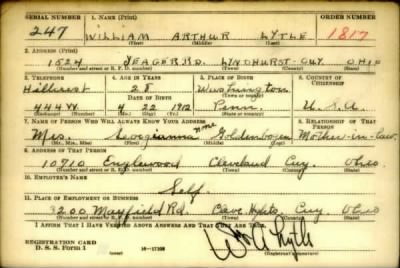 SERIAL NUMBER 1. NAME (Print) ORDER NUMBER
247 WILLIAM ARTHUR LYTLE 1817
(First) (Middle) (Last)
2. ADDRESS (Print)
1524 YEAGER RD. LYNDHURST-CUY OHIO
(Number and street or R. F. D. number) (Town) (County) (State)
3. TELEPHONE 4. AGE IN YEARS 5. PLACE OF BIRTH 6. COUNTRY OF CITIZENSHIP
Hillcrest 28 Washington
DATE OF BIRTH
444W 4 22 1912 Penn. U.S.A.
(Exchange) (Number) (Mo.) (Day) (Yr.) (State or country)
7. NAME OF PERSON WHO WILL ALWAYS KNOW YOUR ADDRESS 8. RELATIONSHIP OF THAT PERSON
Mrs. Georgianna none Goldenbogen Mother-in-law
(Mr., Mrs., Miss) (First) (Middle) (Last)
9. ADDRESS OF THAT PERSON
10710 Englewood Cleveland Cuy. Ohio
(Number and street or R. F. D. number) (Town) (County) (State)
10. EMPLOYER'S NAME
Self.
11. PLACE OF EMPLOYMENT OR BUSINESS
3200 Mayfield Rd. Cleve. Hghts. Cuy. Ohio
(Number and street or R. F. D. number) (Town) (County) (State)
I AFFIRM THAT I HAVE VERIFIED ABOVE ANSWERS AND THAT THEY ARE TRUE.
REGISTRATION CARD
D. S. S. Form 1 16-17105
Wm A Lytle